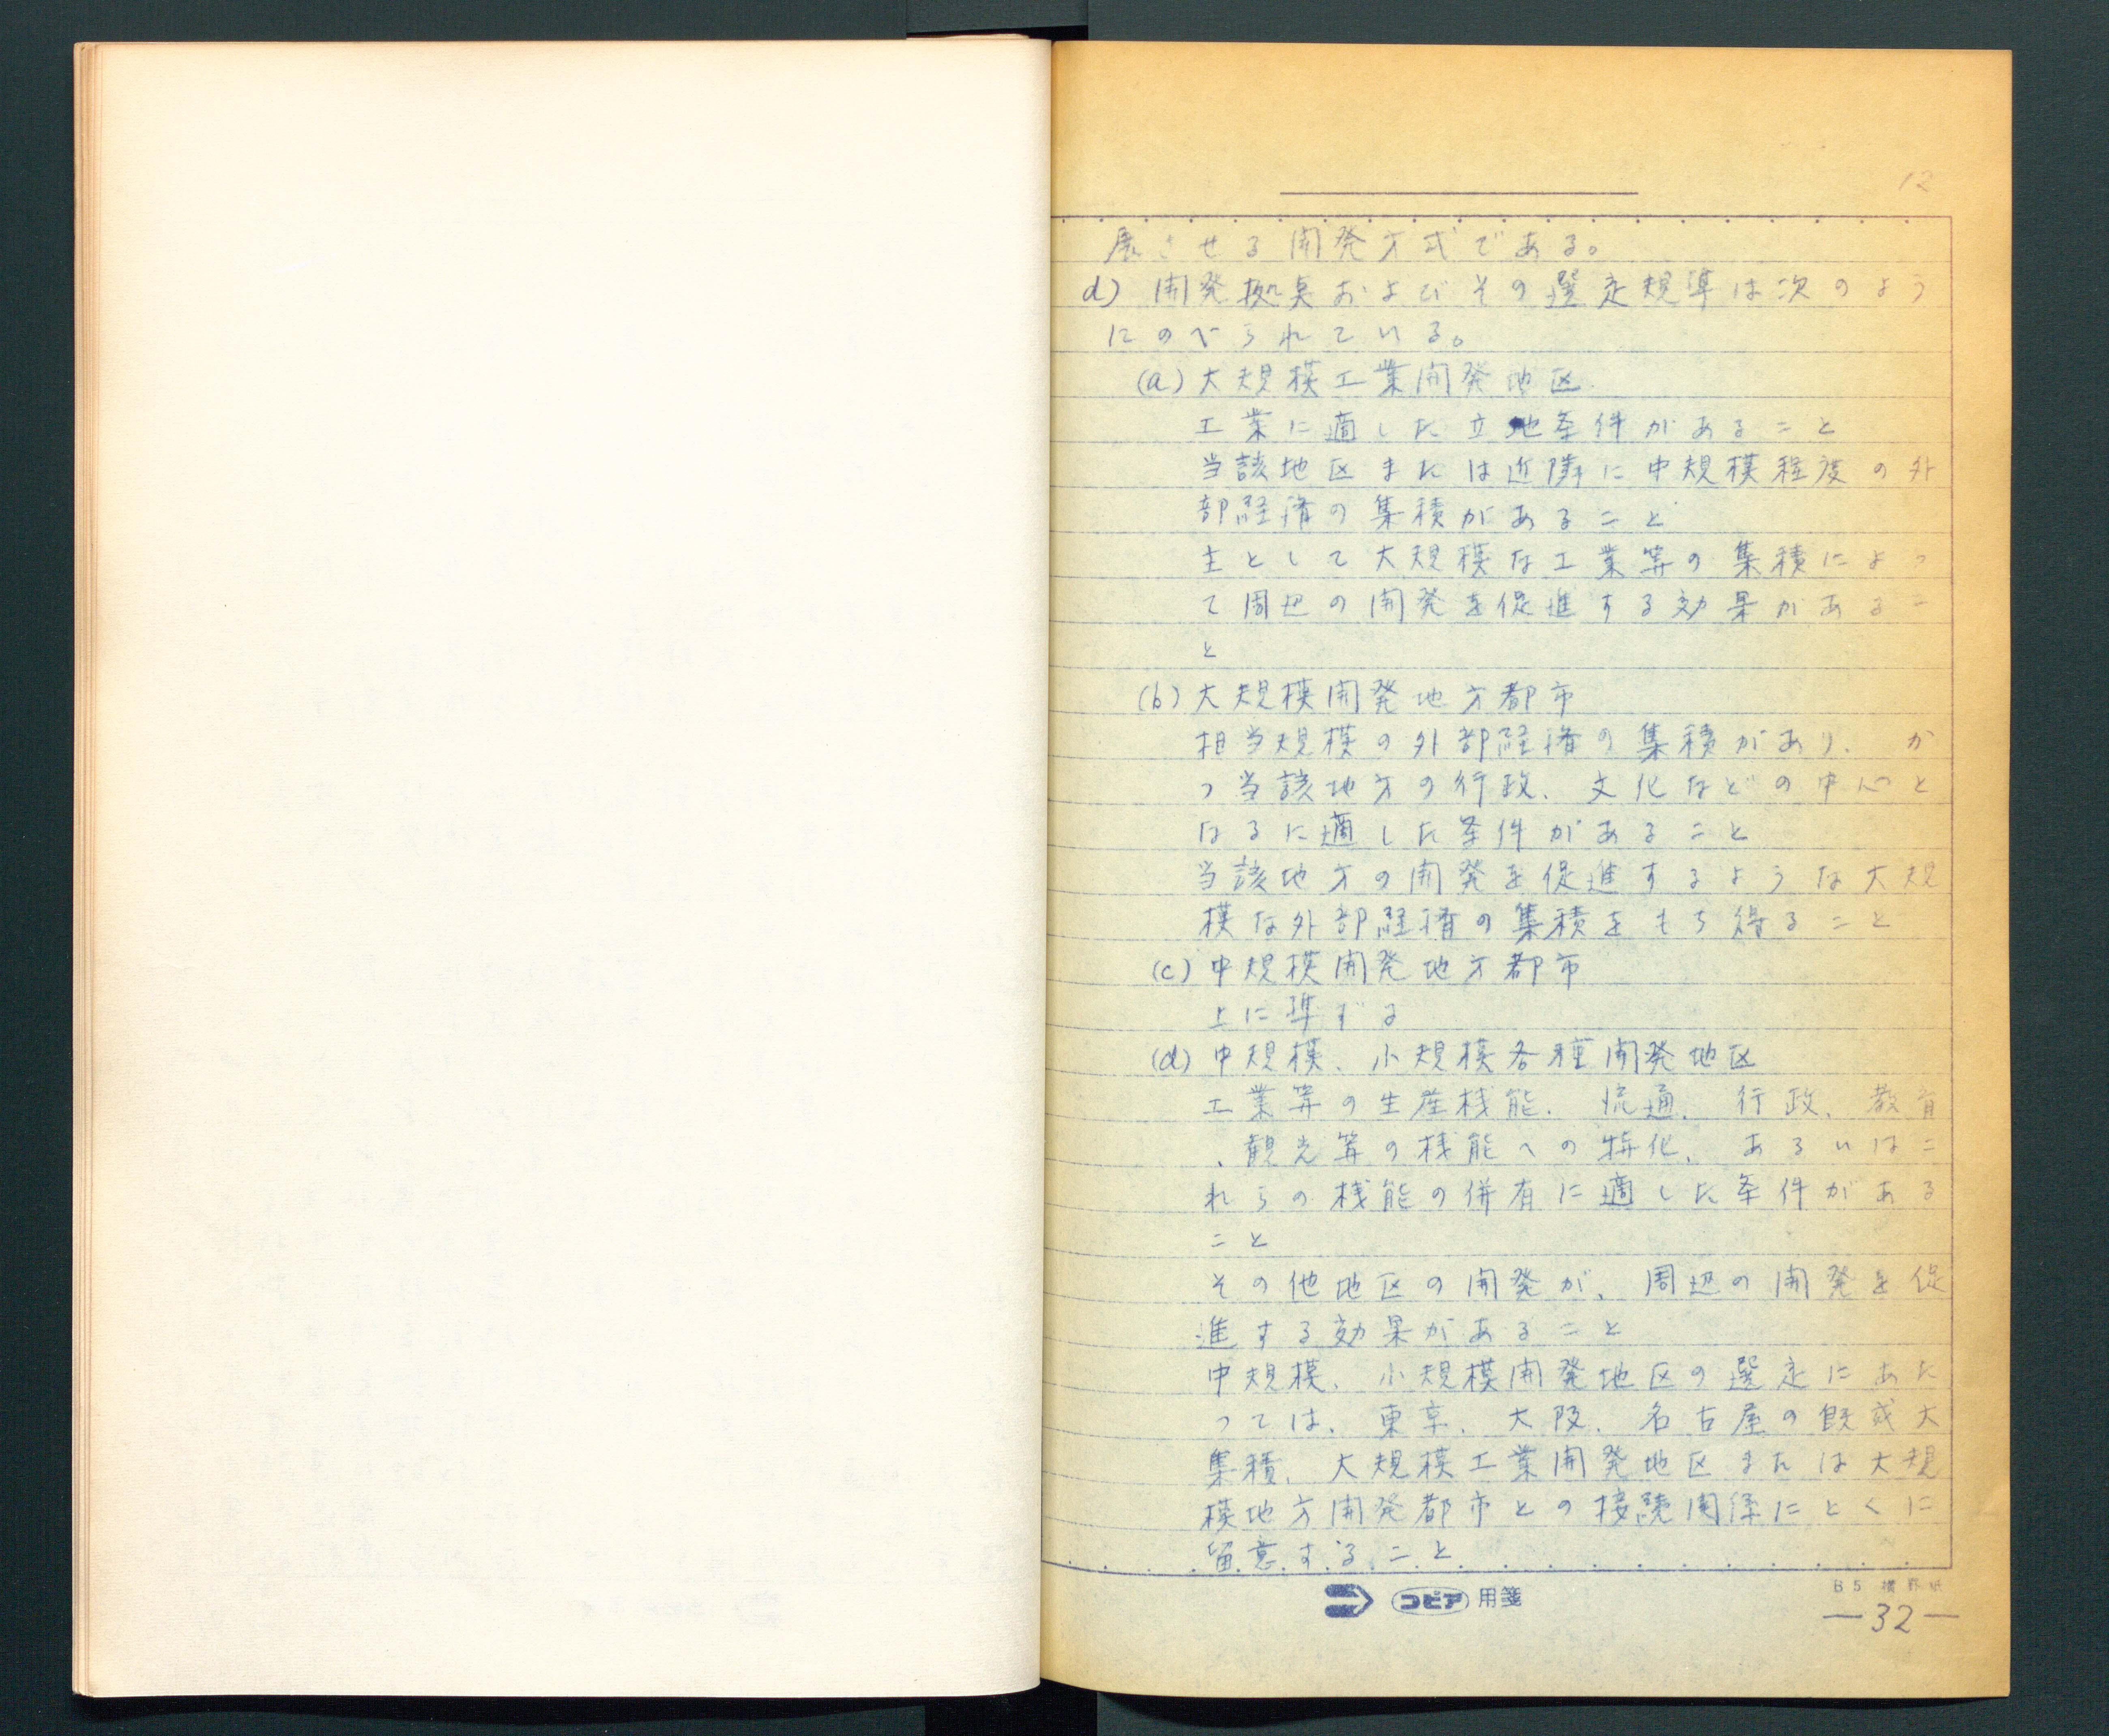 12
展させる開発方式である。
d) 開発拠点およびその選定規準は次のよう
にのべられている。
(a) 大規模工業開発地区
工業に適した立地条件があること
当該地区または近隣に中規模程度の外
部経済の集積があること
主として大規模な工業等の集積によっ
て周辺の開発を促進する効果があるこ
と
(b) 大規模開発地方都市
相当規模の外部経済の集積があり、か
つ当該地方の行政、文化などの中心と
なるに適した条件があること
当該地方の開発を促進するような大規
模な外部経済の集積をもち得ること
(c) 中規模開発地方都市
上に準ずる
(d) 中規模、小規模各種開発地区
工業等の生産機能、流通、行政、教育
、観光等の機能への特化、あるいはこ
れらの機能の併有に適した条件がある
こと
その他地区の開発が、周辺の開発を促
進する効果があること
中規模、小規模開発地区の選定にあた
っては、東京、大阪、名古屋の既成大
集積、大規模工業開発地区または大規
模地方開発都市との接続関係にとくに
留意すること
コピア用箋
B5 横罫紙
—32—